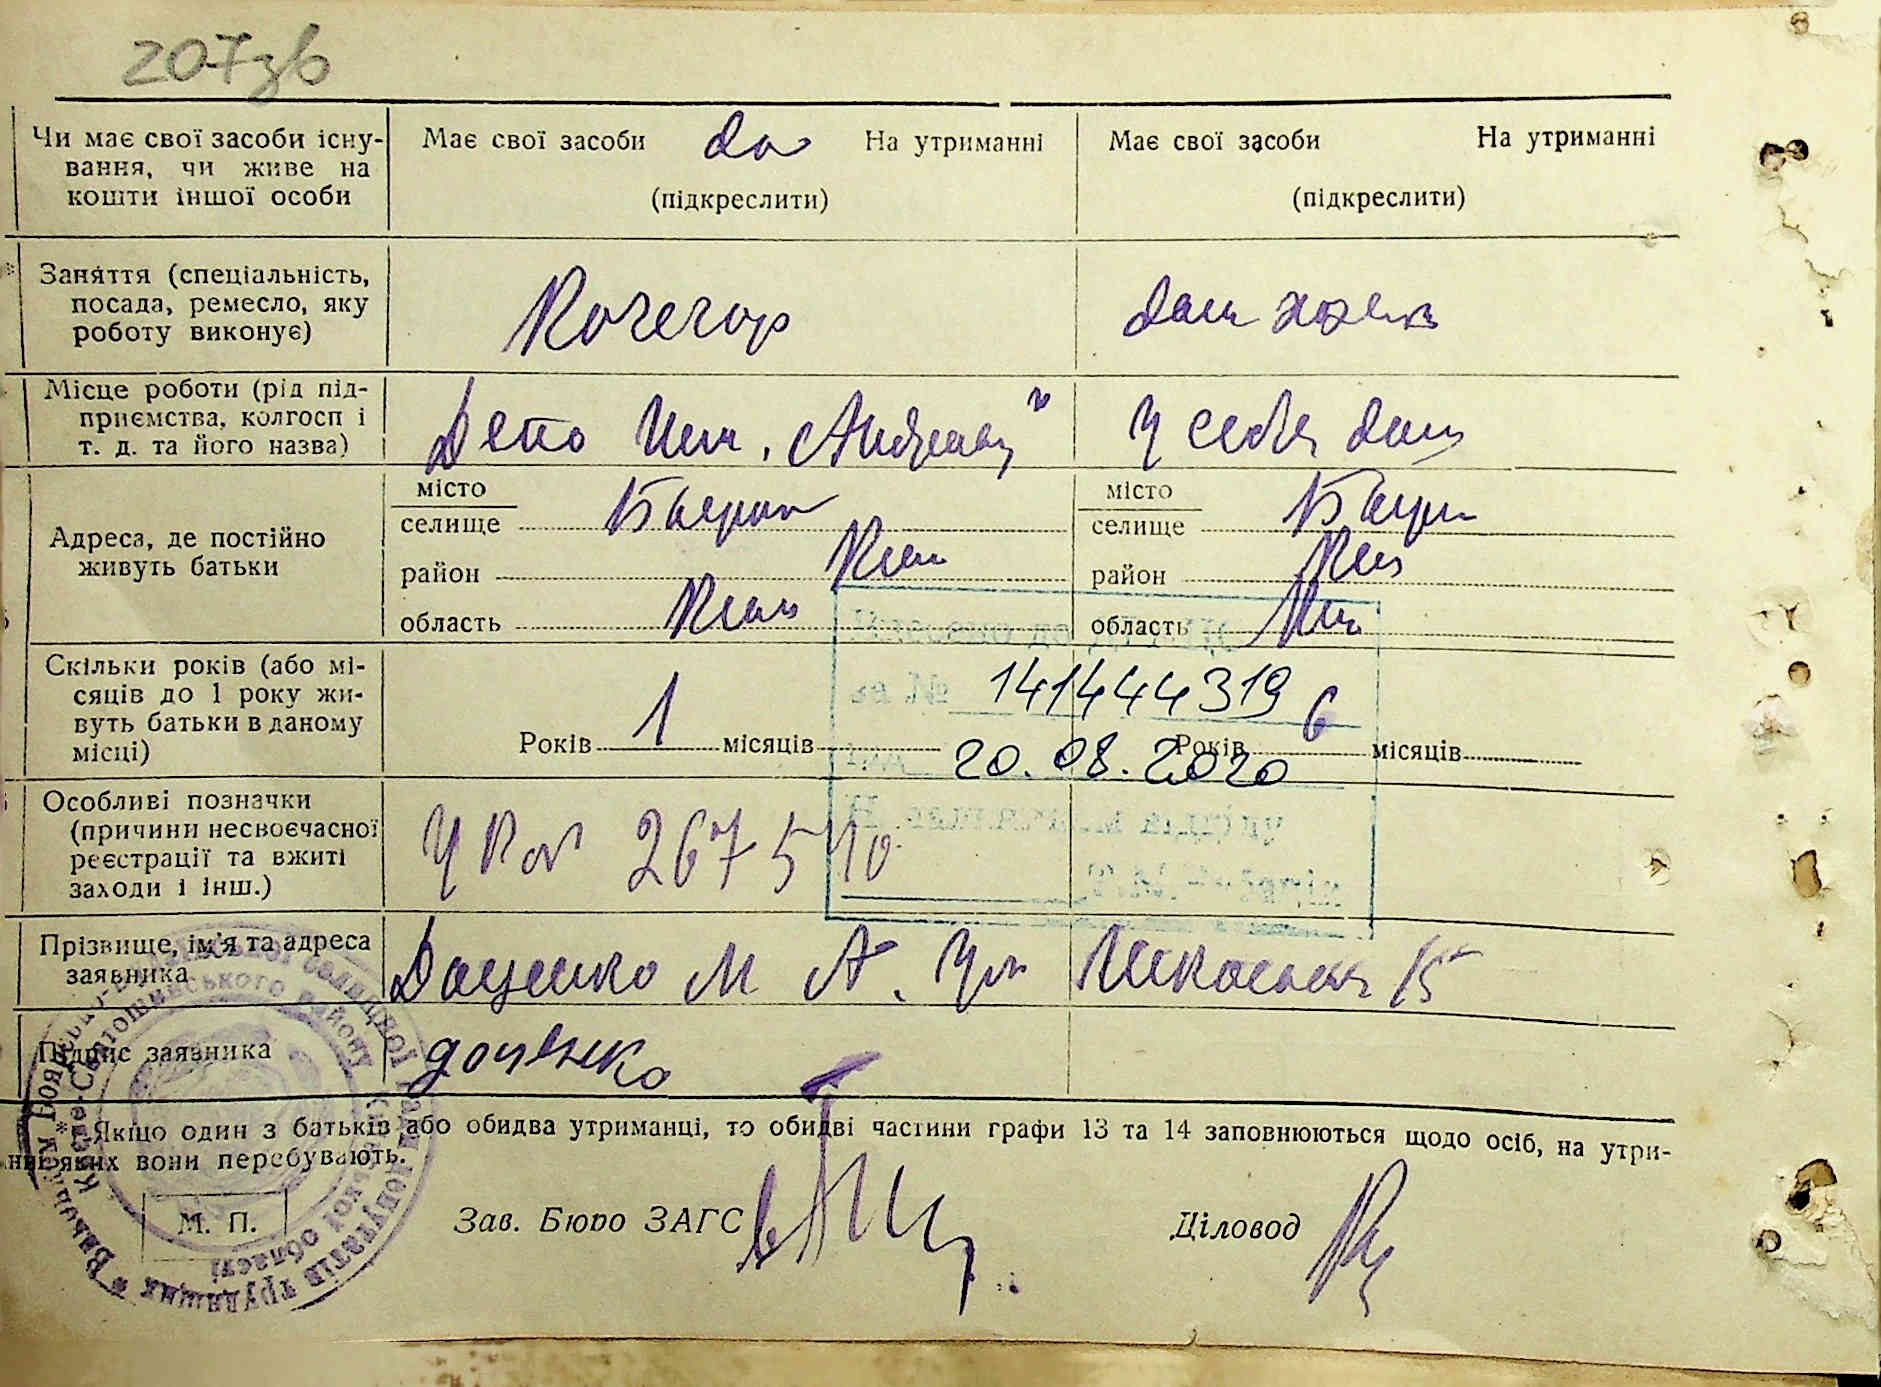 207зв
Чи має свої засоби існу-
вання, чи живе на
кошти іншої особи
Має свої засоби да На утриманні
(підкреслити)
Має свої засоби На утриманні
(підкреслити)
Заняття (спеціальність,
посада, ремесло, яку
роботу виконує)
Кочегар
дом хозяйка
Місце роботи (рід під-
приємства, колгосп і
т. д. та його назва)
Депо им. Андреева
У себя дома
Адреса, де постійно
живуть батьки
місто
селище Боярка
район Киев
область Киев
місто
селище Бояр
район Киев
область Киев
Скільки років (або мі-
сяців до 1 року жи-
вуть батьки в даному
місці)
Років 1 місяців
Років 6 місяців
141444319
20.08.2020
Особливі позначки
(причини несвоєчасної
реєстрації та вжиті
заходи і інш.)
Прізвище, ім'я та адреса
заявника
Доценко М А. ул Школьная 15
Підпис заявника
доценко
* Якщо один з батьків або обидва утриманці, то обидві частини графи 13 та 14 заповнюються щодо осіб, на утри-
яких вони перебувають.
М. П.
Зав. Бюро ЗАГС
Діловод